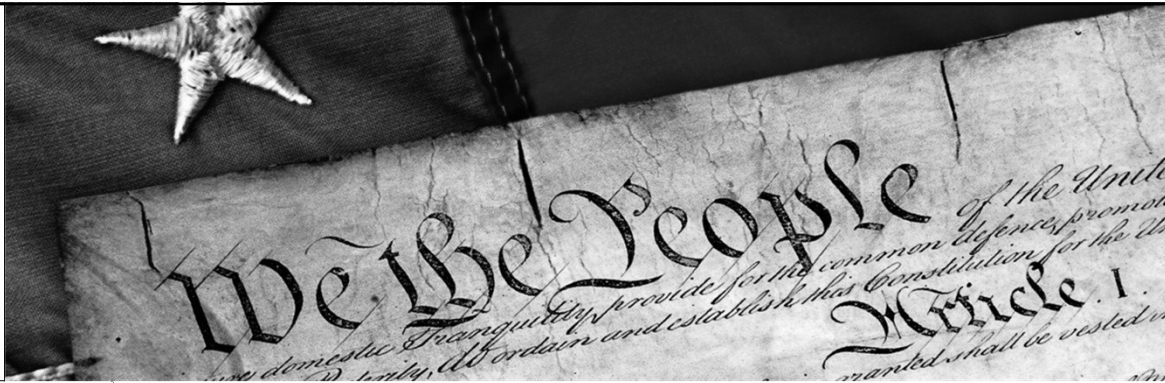 We the People of the Unite
ure domestic Tranquility, provide for the common defence, promot
Posterity, do ordain and establish this Constitution for the Un
Article. I.
ranted shall be vested i